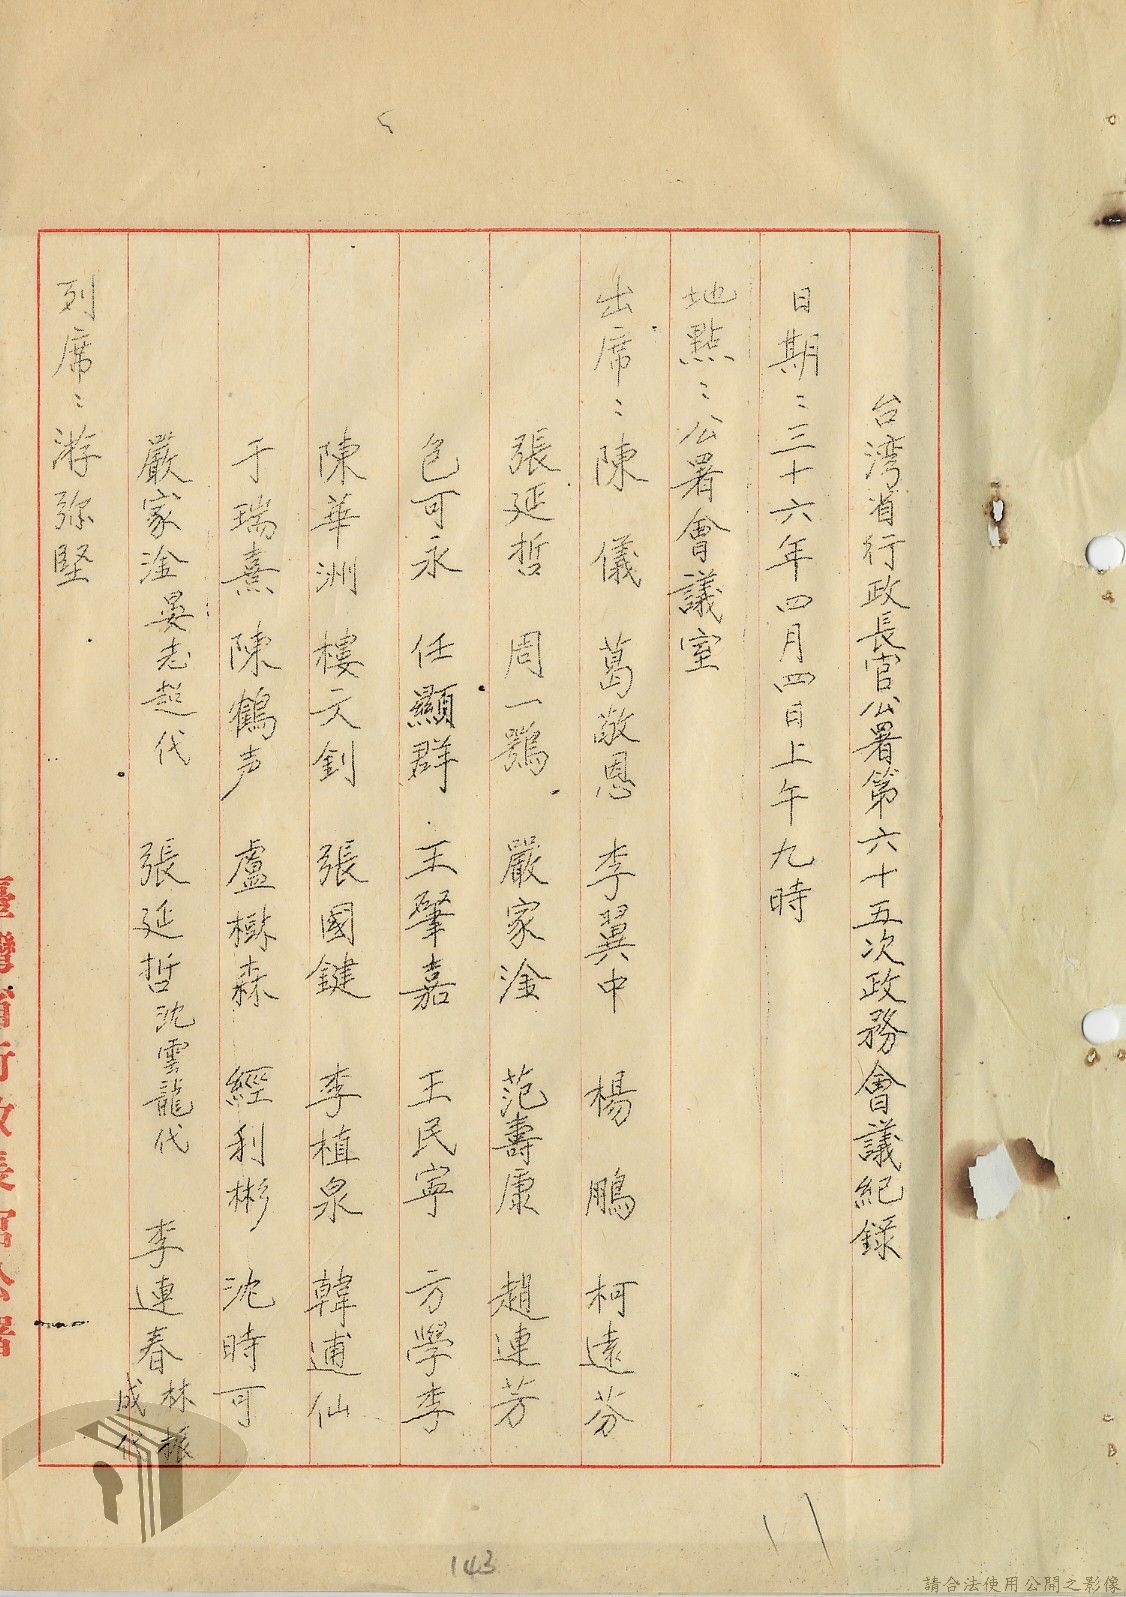 台湾省行政長官公署第六十五次政務會議紀錄
日期：三十六年四月四日上午九時
地點：公署會議室
出席：陳儀 葛敬恩 李翼中 楊鵬 柯遠芬
張延哲 周一鶚 嚴家淦 范壽康 趙連芳
包可永 任顯群 王肇嘉 王民寧 方學李
陳華洲 樓文釗 張國鍵 李植泉 韓逋仙
于瑞熹 陳鶴声 盧樹森 經利彬 沈時可
嚴家淦晏志超代 張延哲沈雲龍代 李連春林振成代
列席：游弥堅
臺灣省行政長官公署
143
請合法使用公開之影像